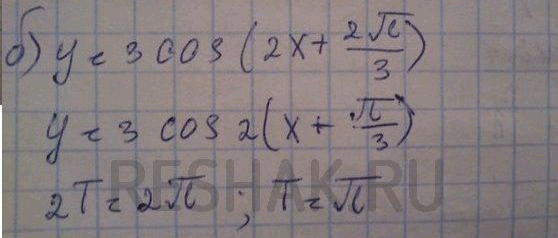 б) y = 3 cos (2x + 2π/3)
y = 3 cos 2(x + π/3)
2T = 2π ; T = π
RESHAK.RU